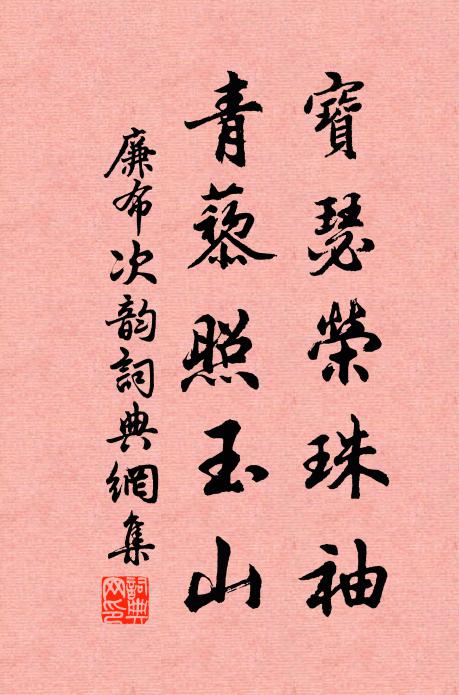 寶瑟榮珠袖
青藜照玉山
廉布次韵詞典網集
詞典网印